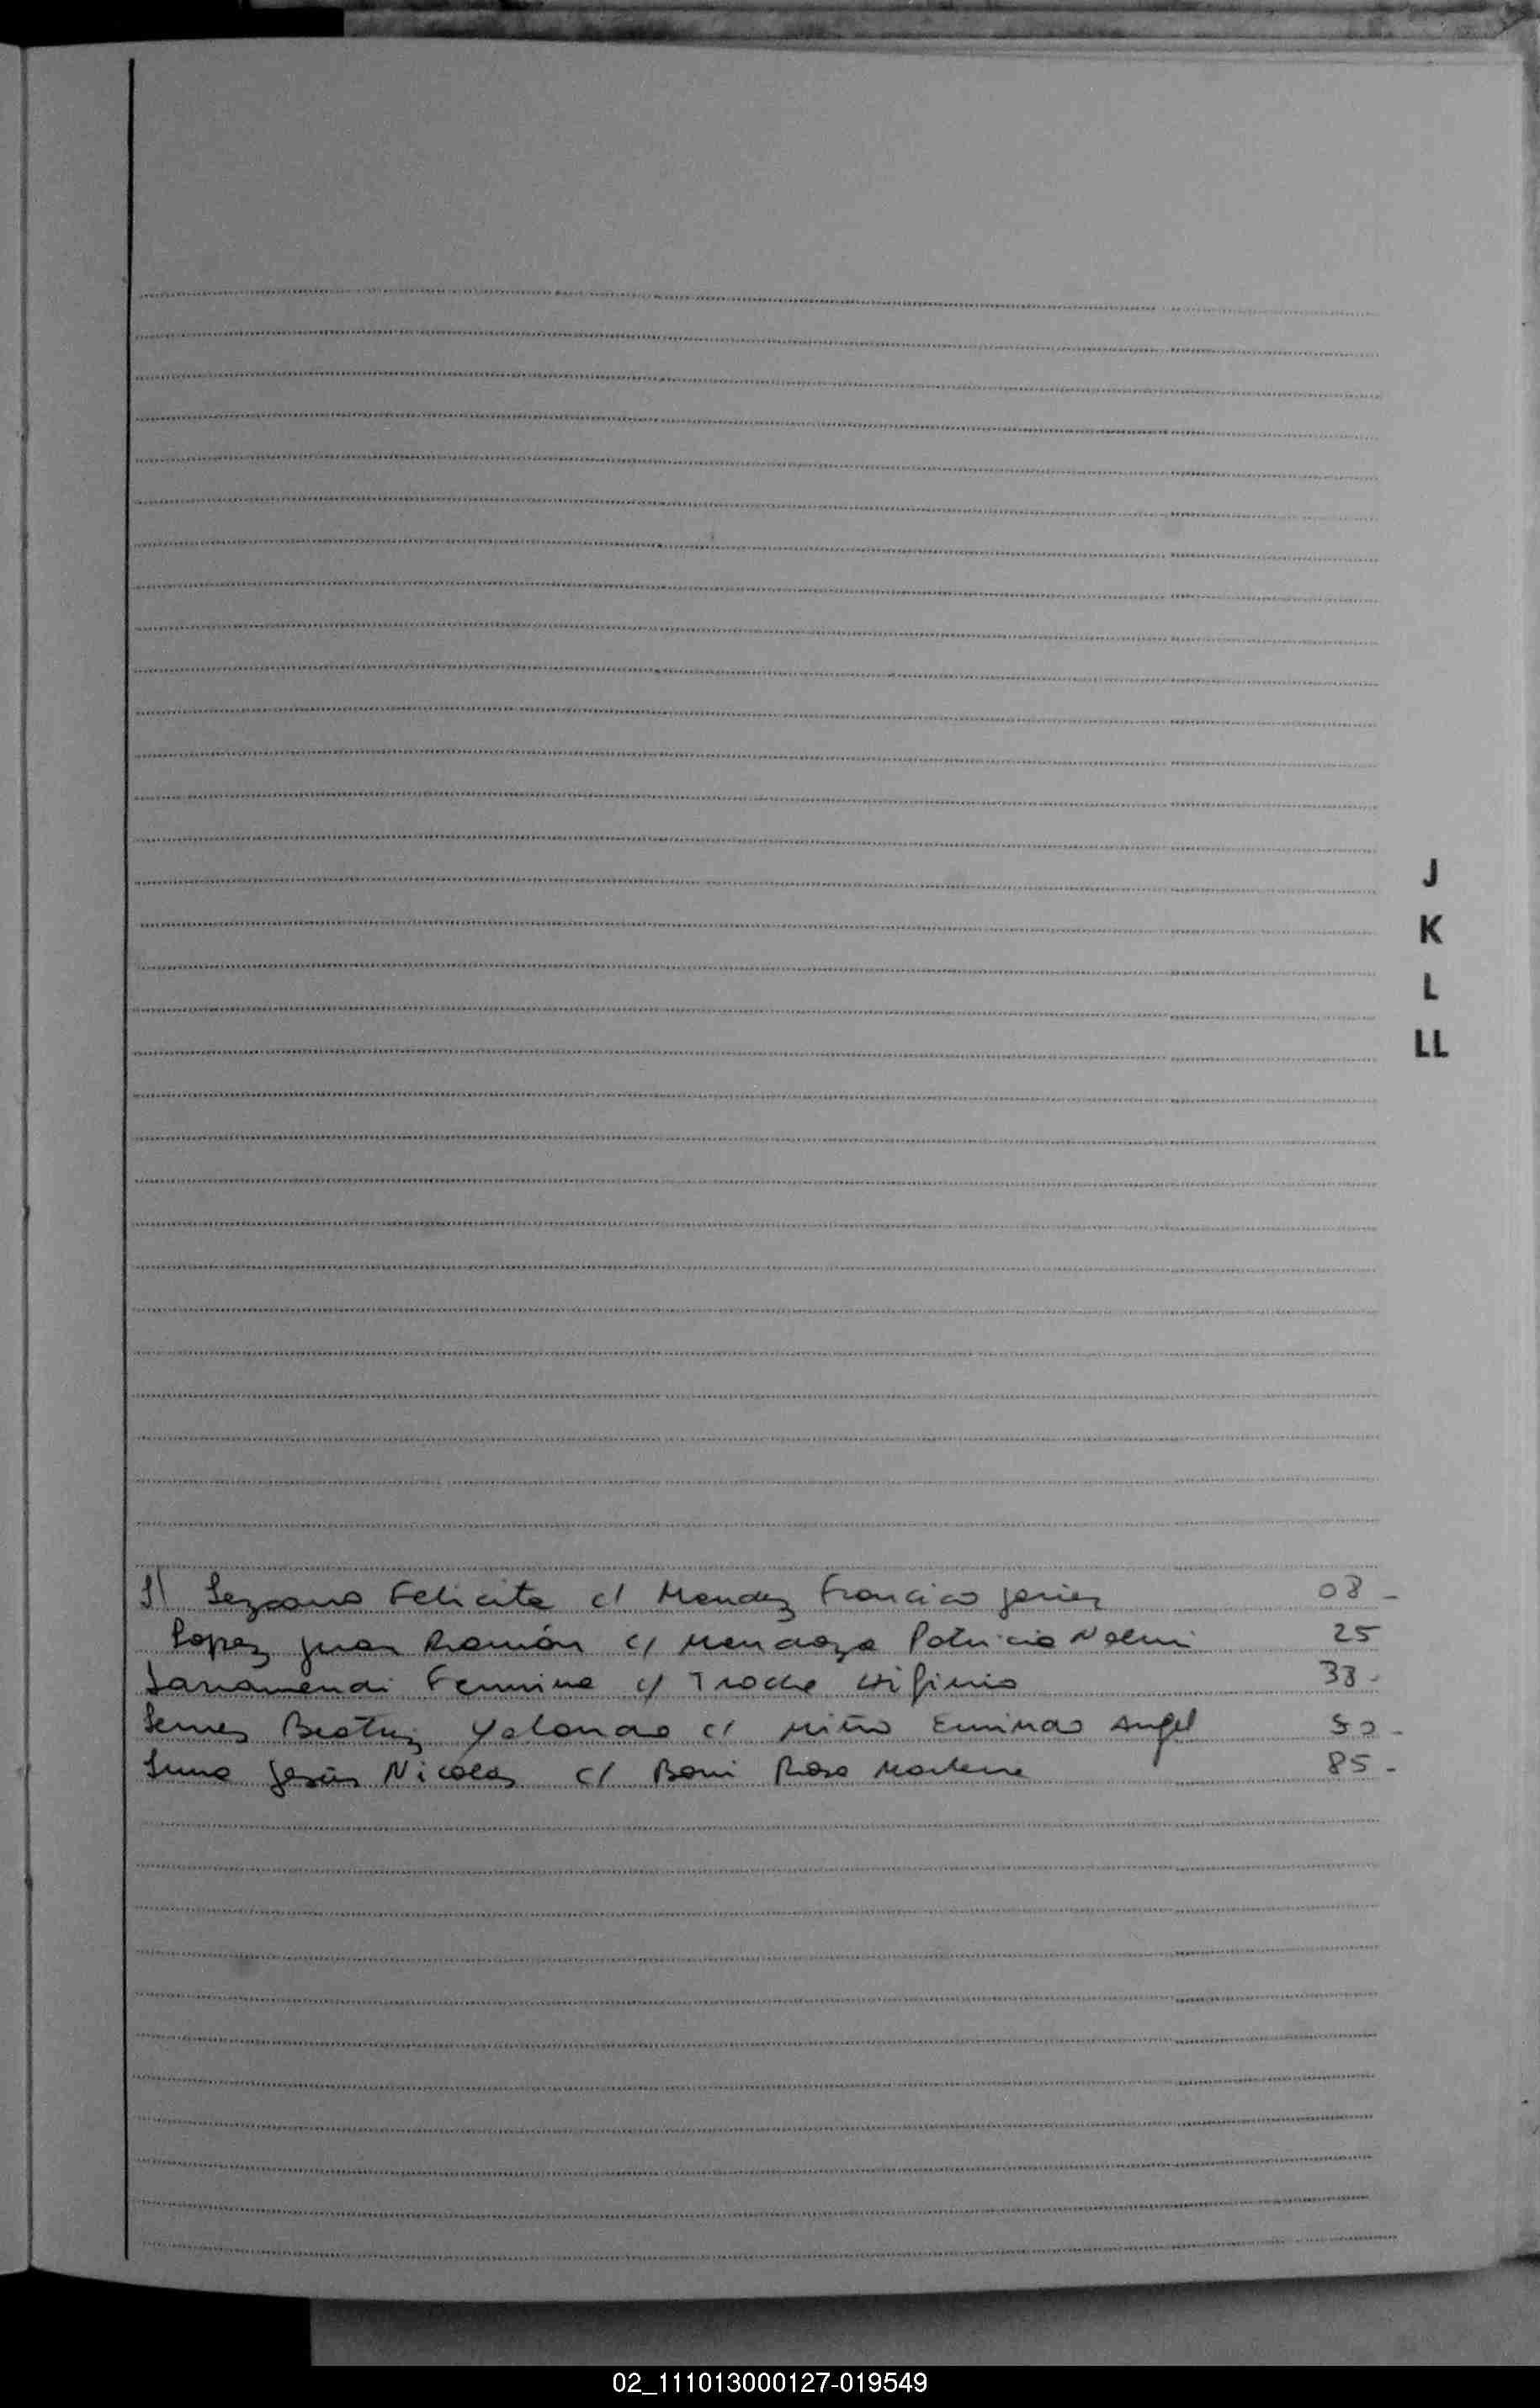 J
K
L
LL
Lezcano Felicita c/ Mendez Francico Javier 08 -
Lopez Juan Ramón c/ Mendoza Patricia Noemi 25
Larramendi Fermina c/ Troche Higinio 33 -
Beatriz Yolanda c/ Miño Angel 50 -
Luna Jesús Nicolas c/ Boni Rosa Marlene 85 -
02_111013000127-019549